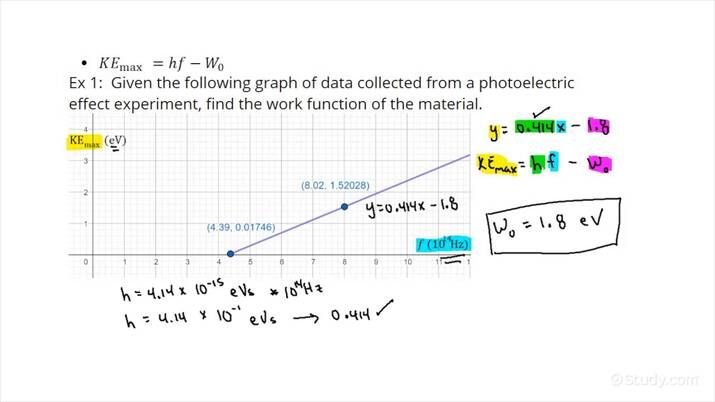 • KEmax = hf − W₀
Ex 1: Given the following graph of data collected from a photoelectric
effect experiment, find the work function of the material.
4
KEmax (eV)
3
2
1
(8.02, 1.52028)
y=0.414x-1.8
(4.39, 0.01746)
f (10¹⁴Hz)
0 1 2 3 4 5 6 7 8 9 10 11 1
y = 0.414x - 1.8
KEmax = hf - W₀
W₀ = 1.8 eV
h = 4.14 x 10⁻¹⁵ eVs * 10¹⁴Hz
h = 4.14 x 10⁻¹ eVs → 0.414 ✓
©Study.com